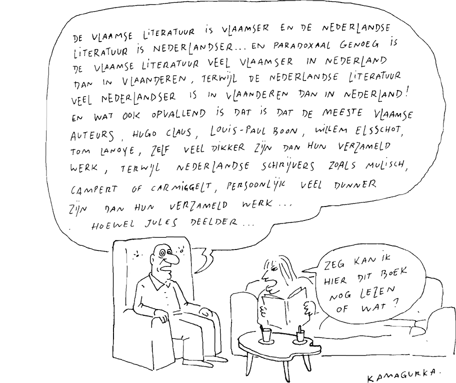 DE VLAAMSE LITERATUUR IS VLAAMSER EN DE NEDERLANDSE
LITERATUUR IS NEDERLANDSER... EN PARADOXAAL GENOEG IS
DE VLAAMSE LITERATUUR VEEL VLAAMSER IN NEDERLAND
DAN IN VLAANDEREN, TERWIJL DE NEDERLANDSE LITERATUUR
VEEL NEDERLANDSER IS IN VLAANDEREN DAN IN NEDERLAND!
EN WAT OOK OPVALLEND IS DAT IS DAT DE MEESTE VLAAMSE
AUTEURS, HUGO CLAUS, LOUIS-PAUL BOON, WILLEM ELSSCHOT,
TOM LANOYE, ZELF VEEL DIKKER ZIJN DAN HUN VERZAMELD
WERK, TERWIJL NEDERLANDSE SCHRIJVERS ZOALS MULISCH,
CAMPERT OF CARMIGGELT, PERSOONLIJK VEEL DUNNER
ZIJN DAN HUN VERZAMELD WERK...
HOEWEL JULES DEELDER...
ZEG KAN IK
HIER DIT BOEK
NOG LEZEN
OF WAT?
KAMAGURKA.